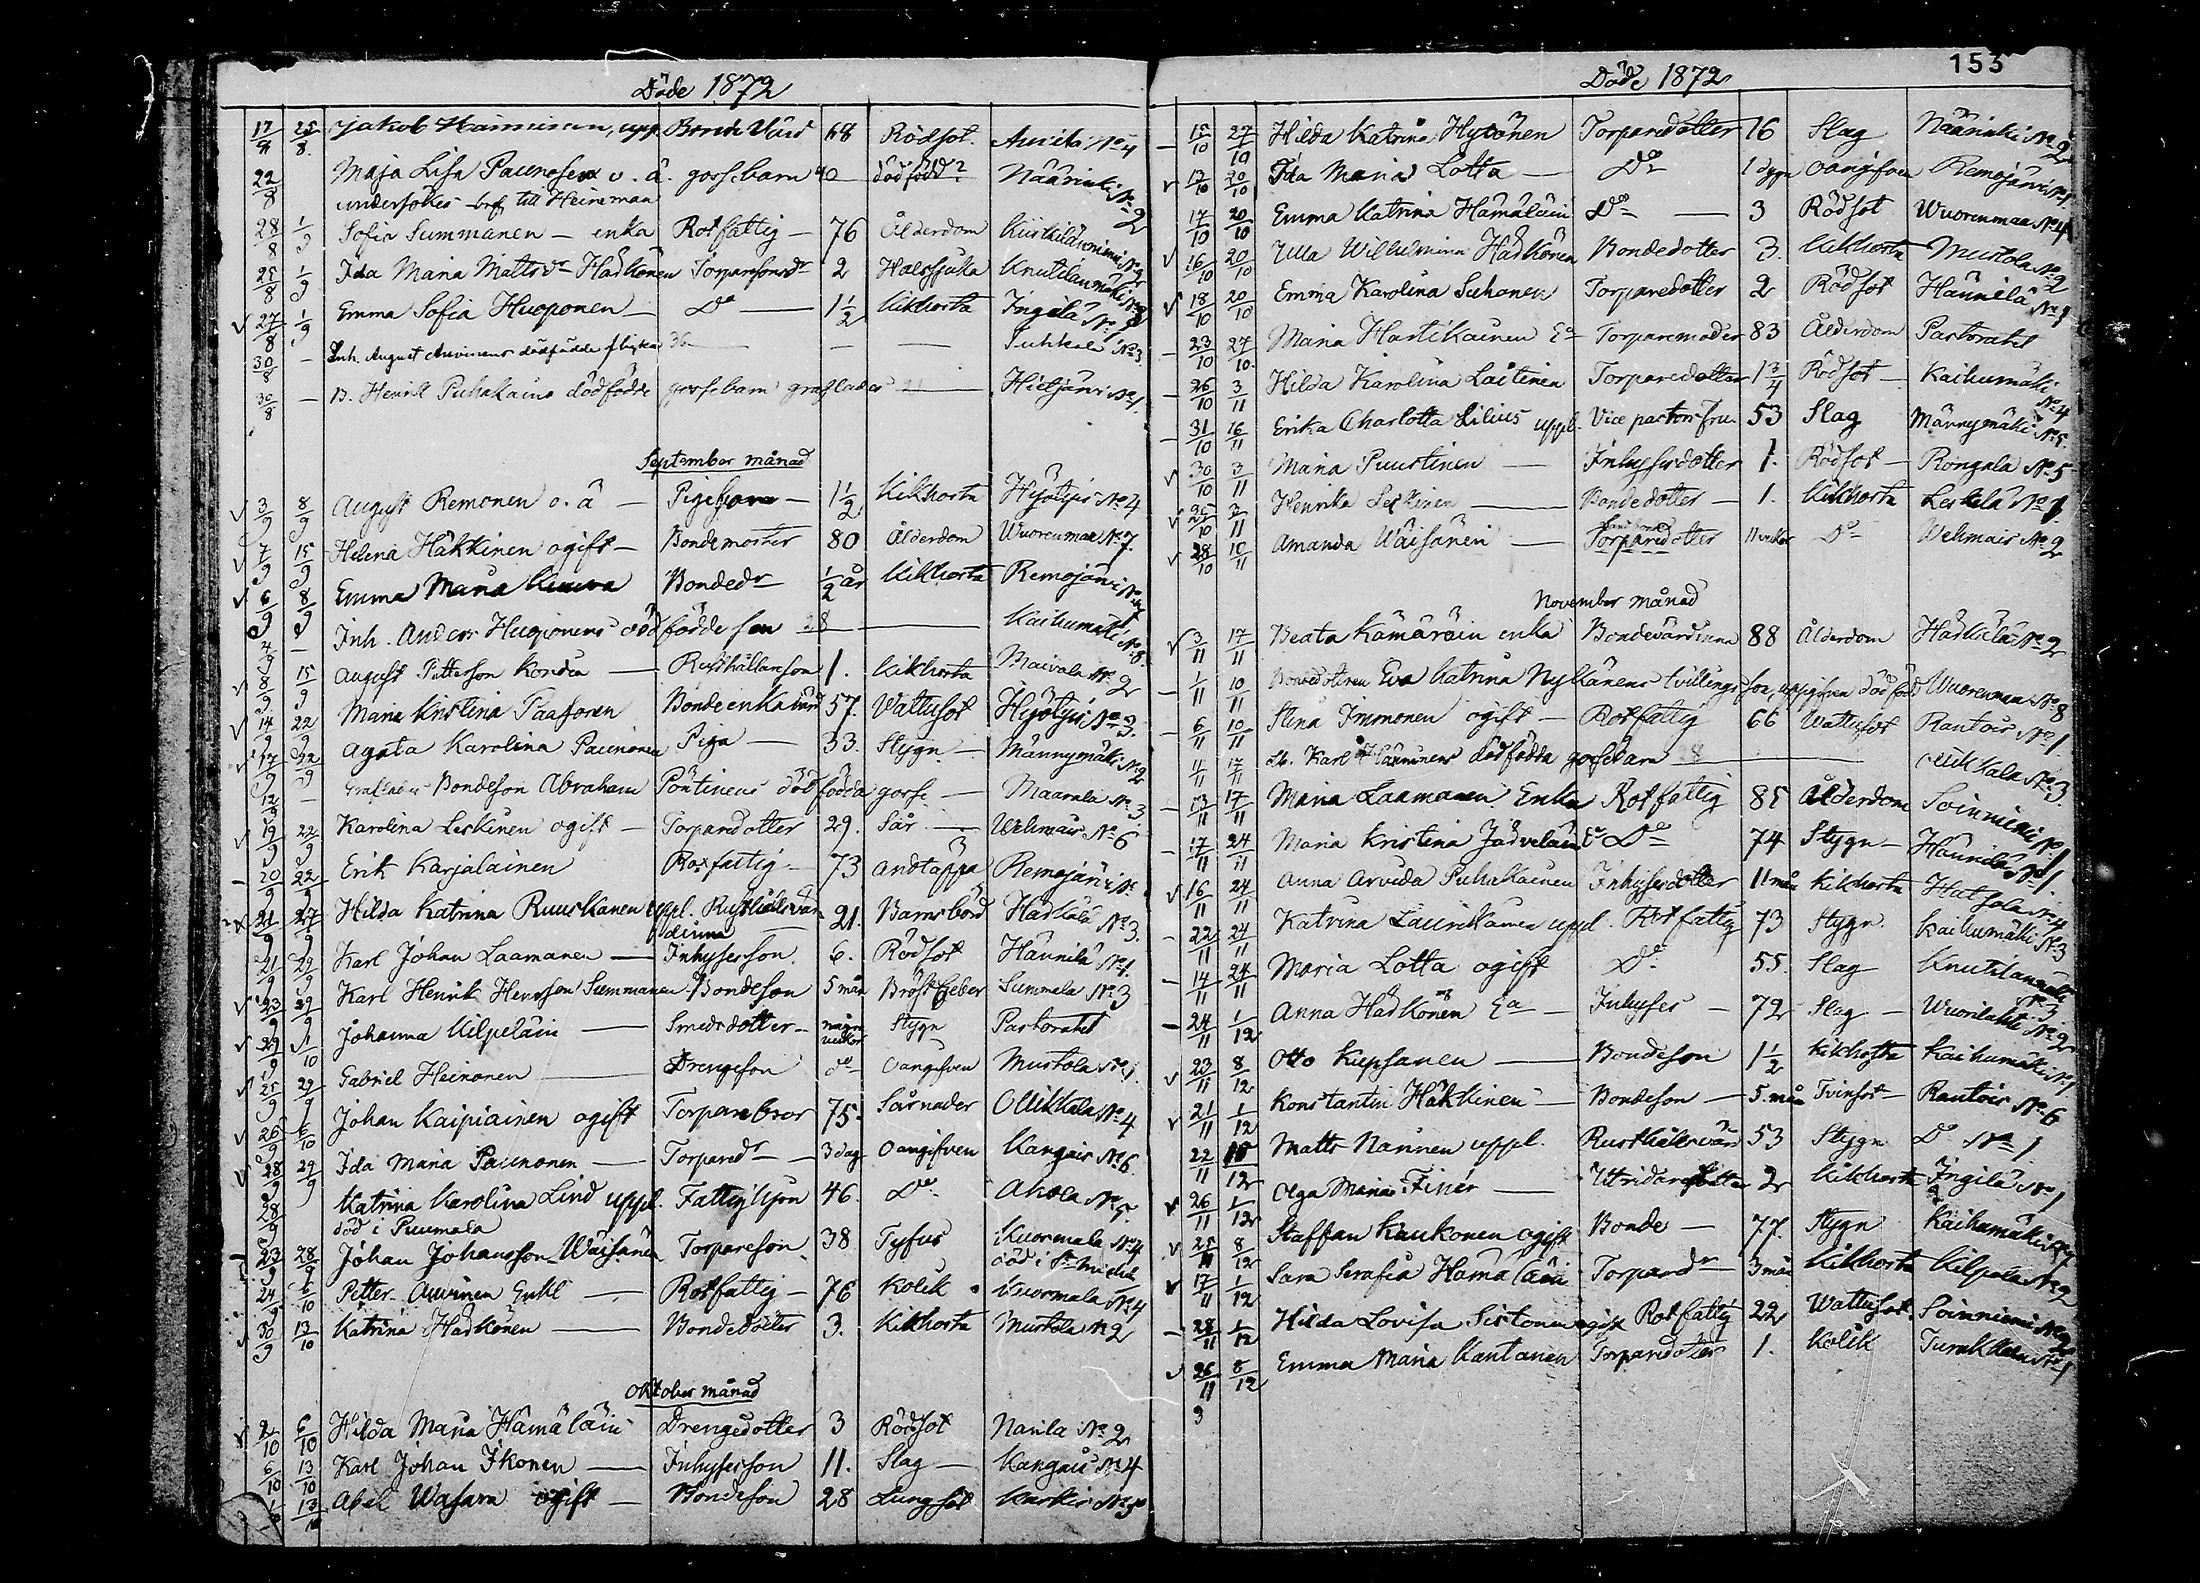 Döde 1872
17/8 25/8 Jakob Hänninen, upp. Bonde Värd 68 Rödsot Nº 4
22/8 Maja Lisa Paunosen o. ä. gossebarn 40 dödfödd? Näärinki Nº 2
undersökes till Heineman
28/8 1/9 Sofia Summanen - enka Rotfattig - 76 Ålderdom
25/8 1/9 Ida Maria Mattsdr Haskonen Torparsonsdr 2 Halssjuka Knutilanmäki
27/8 1/9 Emma Sofia Huoponen - Dº - 1 1/2 Kikhosta Ingilä Nº 1
30/8 - Inh. August Auvinens dödfödde flicka Suhkala Nº 3
30/8 - B. Henrik Puhakains dödfödde gossebarn Hietjärvi Nº 1.
September månad
3/9 8/9 August Remonen o. ä - Pigeson - 1 1/2 Kikhosta Hyötyis Nº 4
7/9 15/9 Helena Häkkinen ogift - Bondemoster 80 Ålderdom Wuorenmaa Nº 7.
6/9 8/9 Emma Maria Bondedr 1/2 år Kikhosta Remojärvi
4/9 - Inh. Anders Huoponens dödfödde son 28 Kaihumäki Nº 8.
8/9 15/9 August Petterson Rusthållareson 1. Kikhosta Maivala Nº 2
14/9 22/9 Maria Kristina Paasonen Bondeenka 57. Vattusot Hyötyis Nº 3.
17/9 22/9 Agata Karolina Paunonen Piga - 33. Stygn - Männymäki Nº 2
12/9 - Bondeson Abraham Pöntinens dödfödda gosse - Maarala Nº 3.
19/9 22/9 Karolina Leskinen ogift - Torparedotter 29. Sår - Wehmais Nº 6
20/9 22/9 Erik Karjalainen Rotfattig - 73 Andtäppa Remojärvi Nº
21/9 27/9 Hilda Katrina Ruuskanen uppl. Rusthålsvär-
dinna 21. Barnsbörd Haskälä Nº 3.
21/9 29/9 Karl Johan Laamanen - Inhyseson 6. Rödsot Hännilä Nº 1.
23/9 29/9 Karl Henrik Summanen Bondeson 5 mån Bröstfeber Summala Nº 3
29/9 1/10 Johanna Kilpeläin - Smedsdotter - några veckor Stygn Pastoratet
25/9 29/9 Gabriel Heinonen - Drengeson dº Oangifven Mustola Nº 1.
26/9 6/10 Johan Kaipiainen ogift Torparebror 75. Sårnader Ollikkala Nº 4
28/9 29/9 Ida Maria Paunonen - Torparedr - 3 dag Oangifven Kangais Nº 6.
28/9 Katrina Karolina Lind uppl. Fattighjon 46. Dº Ahola Nº 5.
död i Puumala
23/9 28/9 Johan Johansson Wäisänen Torpareson 38 Tyfus Kuormala Nº 4
död i St Michel
24/9 6/10 Petter Auvinen Enkl - Rotfattig - 76 Kolik Kuormala Nº 4
30/9 13/10 Katrina Haskonen - Bondedotter 3. Kikhosta Mustola Nº 2
Oktober månad
2/10 6/10 Hilda Maria Hämäläin Drengedotter 3 Rödsot Narila Nº 2
6/10 13/10 Karl Johan Ikonen - Inhyseson 11. Slag - Kangais Nº 4
13/10 Abel Wasara ogift - Bondeson 28 Lungsot
Döde 1872
155
15/10 27/10 Hilda Katrina Hytönen Torparedotter 16 Slag Näärinki Nº 2
17/10 20/10 Ida Maria Lotta - Dº 1 dygn Oangifven Remojärvi Nº
17/10 20/10 Emma Katrina Hämäläin Dº - 3 Rödsot Wuorenmaa Nº 4
16/10 20/10 Ulla Wilhelmina Haskonen Bondedotter 3. Kikhosta Mustola Nº 2
18/10 20/10 Emma Karolina Suhonen Torparedotter 2 Rödsot Hännilä Nº 1
23/10 27/10 Maria Hartikainen Ea Torparemoder 83 Ålderdom Pastoratet
26/10 3/11 Hilda Karolina Laitinen Torparedotter 1 3/4 Rödsot - Kaihumäki Nº 4
31/10 16/11 Erika Charlotta Lilius uppl. Vice pastors fru 53 Slag Männymäki Nº 5.
30/10 3/11 Maria Puustinen - Inhysesdotter 1. Rödsot - Rongala Nº 5
25/10 3/11 Henrika Leskinen - Bondedotter - 1. Kikhosta Leskelä Nº 1.
28/10 10/11 Amanda Wäisänen - Torparedotter 11 veckor Dº Wehmais Nº 2
November månad
3/11 17/11 Beata Kämäräin enka Bondevärdinna 88 Ålderdom Haskälä Nº 2
1/11 10/11 Bondedotren Eva Katrina Nykänens tvillings son, uppgifven dödfödd Wuorenmaa Nº 8
6/11 10/11 Stina Immonen ogift - Rotfattig 66 Wattusot Rantois Nº 1
4/11 17/11 Karl Hänninens dödfödda gossebarn - 8 Ollikkala Nº 3
13/11 17/11 Maria Laamanen Enka Rotfattig 85 Ålderdom Soinniemi Nº 1
17/11 24/11 Maria Kristina Jääveläin Ea Dº 74 Stygn - Hännilä Nº 1.
16/11 24/11 Anna Arvida Puhakainen Inhysesdotter 11 mån Kikhosta Hatsola Nº 4
22/11 24/11 Katrina Laurikainen uppl. Rotfattig 73 Stygn. Kaihumäki Nº 3
14/11 24/11 Maria Lotta ogift Dº 55 Slag Knutilanmäki Nº 3
24/11 1/12 Anna Haskonen Ea - Inhyses - 72 Slag - Wuorilahti Nº 2
23/11 8/12 Otto Kupsanen - Bondeson 1 1/2 Kikhosta Kaihumäki Nº 1
21/11 1/12 Konstantin Häkkinen - Bondeson - 5. mån Tvinsot - Rantois Nº 6
22/11 15/12 Matts Narinen uppl. Rusthållsvärd 53 Stygn Dº Nº 1
26/11 1/12 Olga Maria Finér - dotter 2 Kikhosta Ingilä Nº 1
25/11 8/12 Staffan Kaukonen ogift Bonde - 77. Stygn Kaihumäki
17/11 1/12 Sara Serafia Hämäläin Torparedr - 3 mån Kikhosta Kilpola Nº 2
28/11 1/12 Hilda Lovisa Sistonen ogift Rotfattig 22 Wattusot. Soinniemi
26/11 8/12 Emma Maria Kantanen Torparedotter 1. Kolik